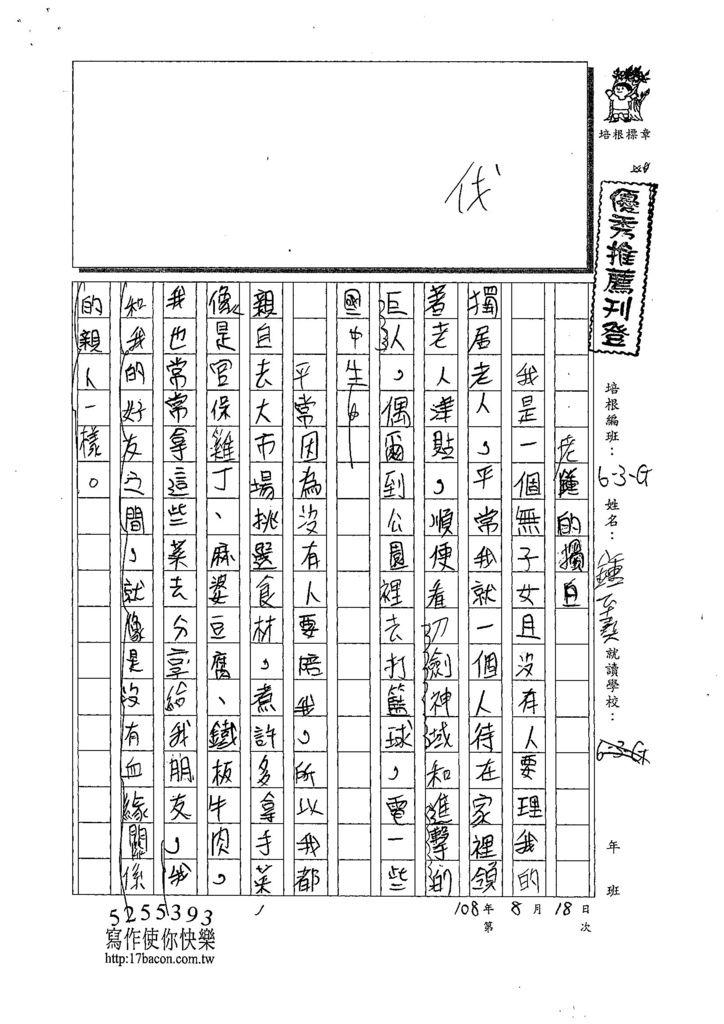 伐
培根標章
優秀推薦刊登
培根編班：6-3-G
姓名：鍾
就讀學校：6-3-G
年 班
老鍾的獨自
我是一個無子女且沒有人要理我的
獨居老人，平常我就一個人待在家裡領
著老人津貼，順便看刀劍神域和進擊的
巨人，偶爾到公園裡去打籃球，電一些
國中生。
平常因為沒有人要陪我，所以我都
親自去大市場挑選食材，煮許多拿手菜
像是宮保雞丁、麻婆豆腐、鐵板牛肉，
我也常常拿這些菜去分享給我朋友，我
和我的好友之間，就像是沒有血緣關係
的親人一樣。
108年8月18日
第 次
1
5255393
寫作使你快樂
http:17bacon.com.tw